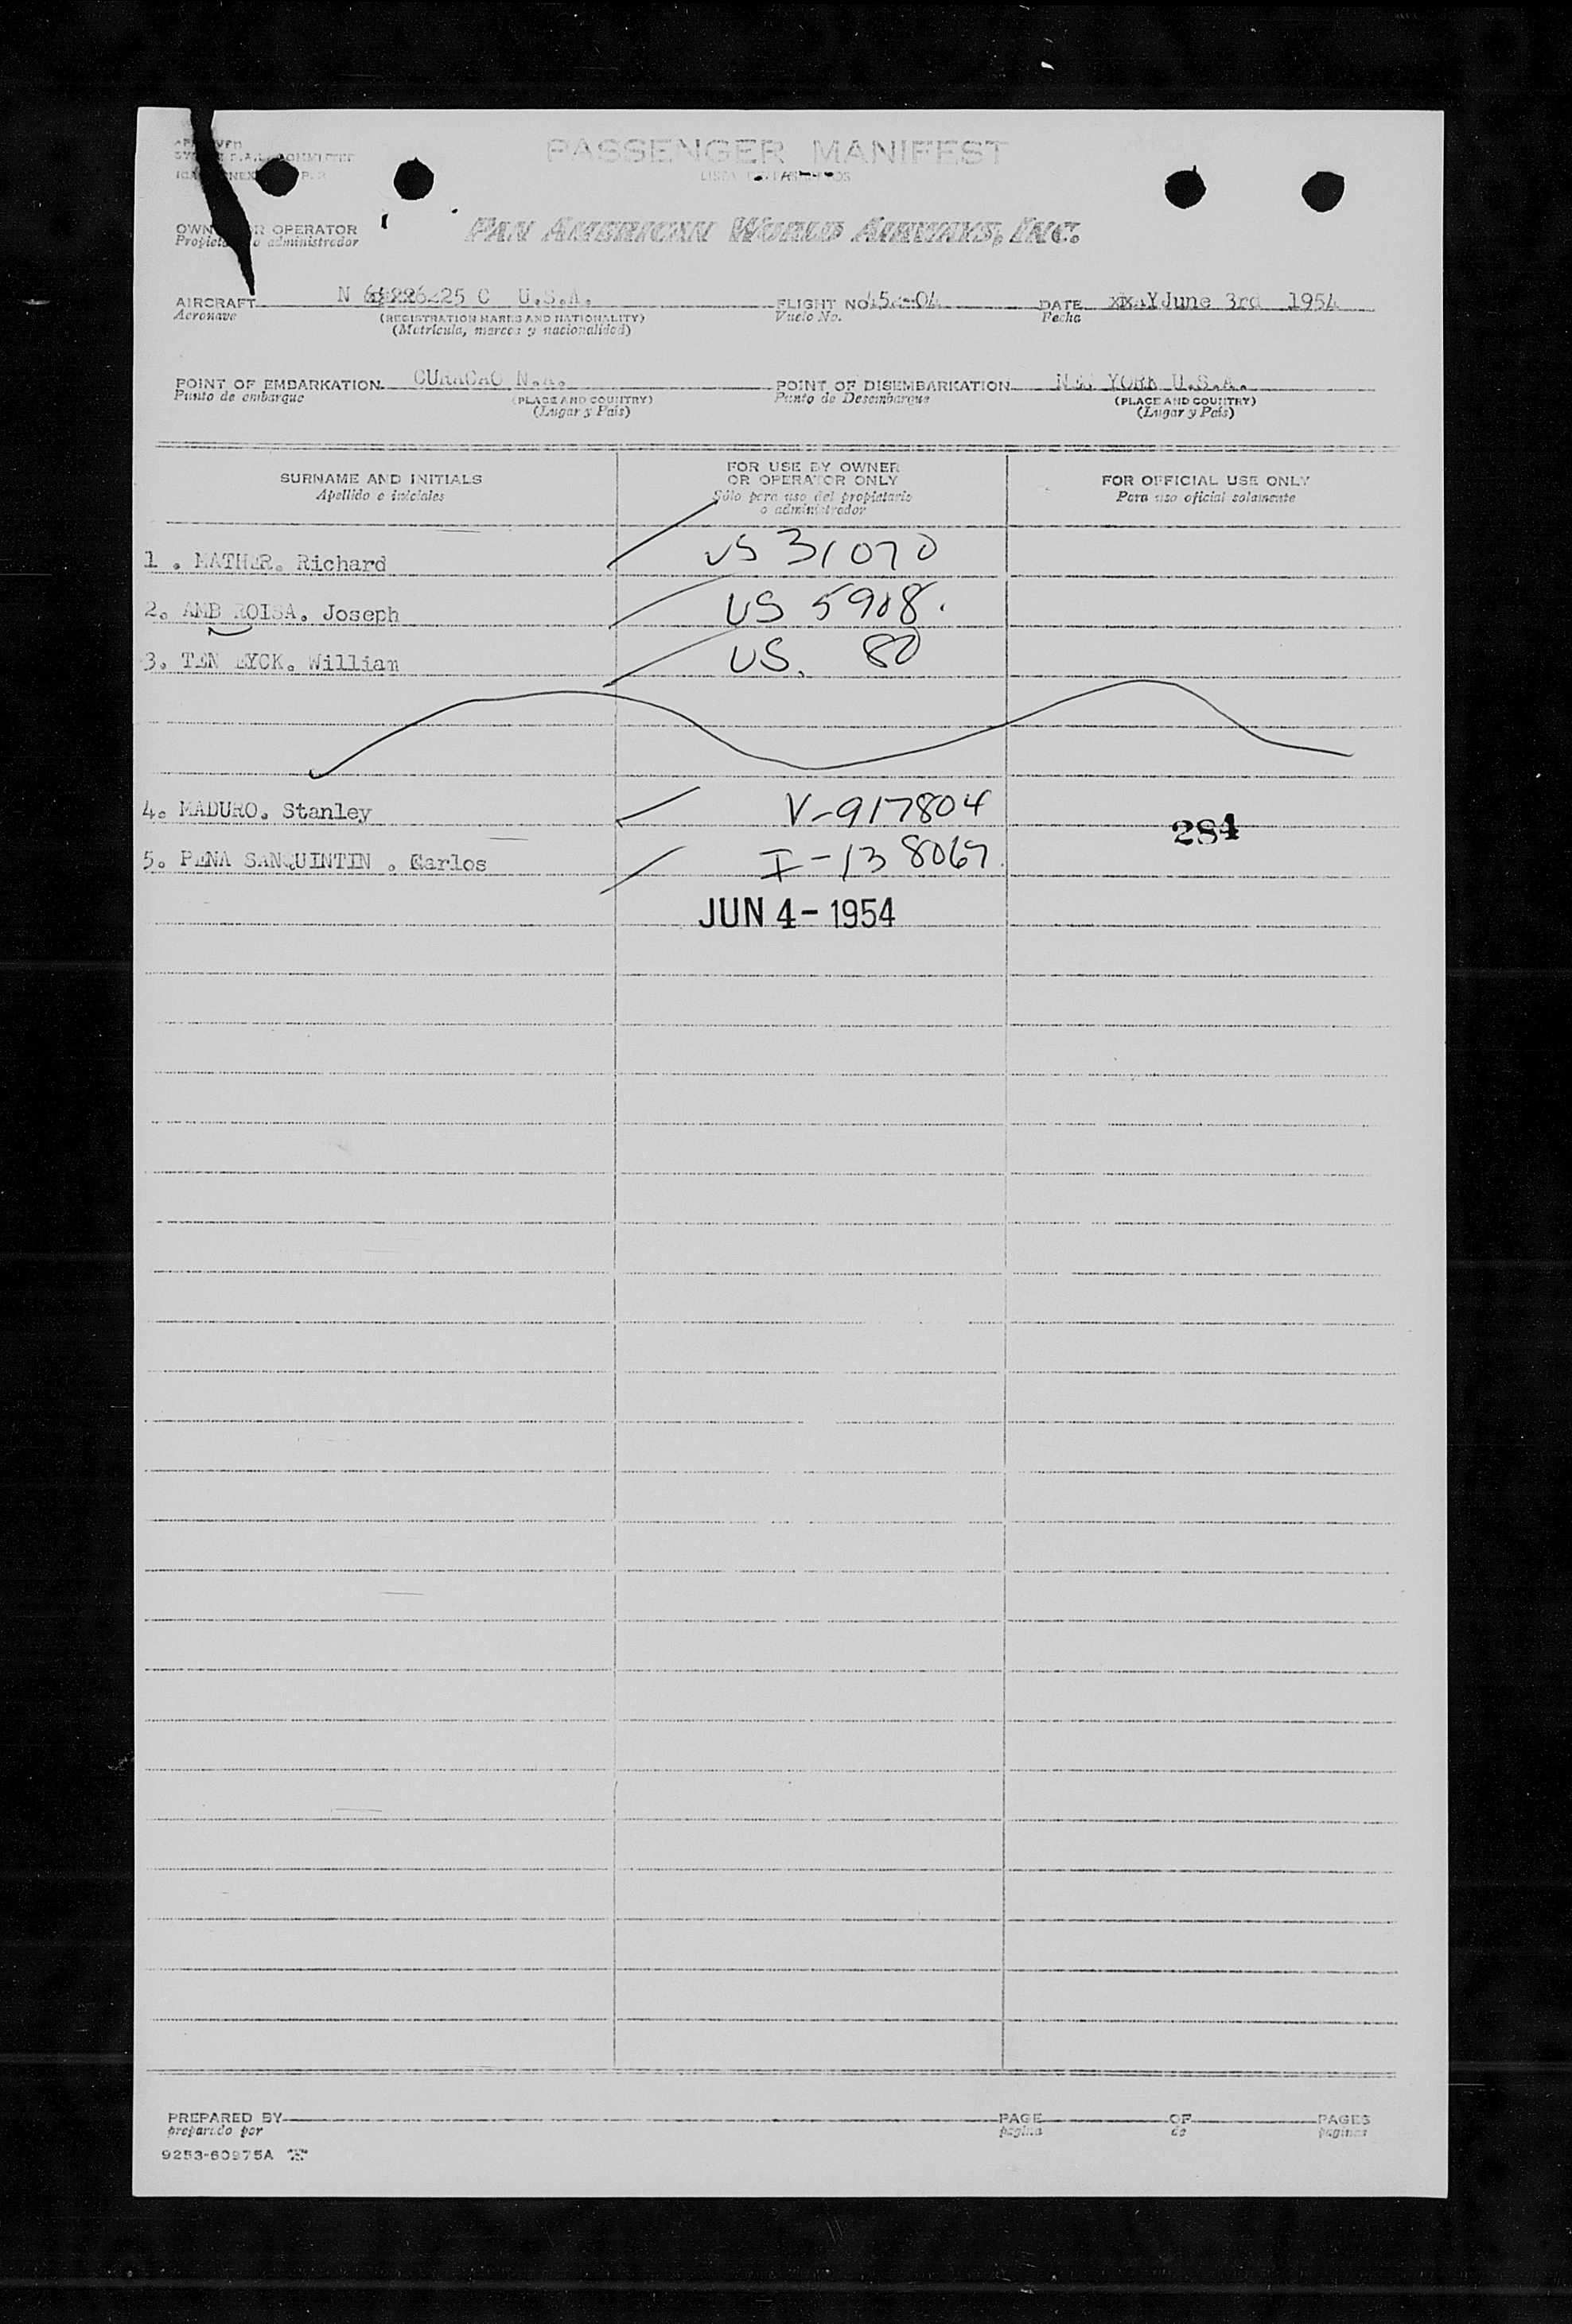 PASSENGER MANIFEST
OWNER OR OPERATOR PAN AMERICAN WORLD AIRWAYS, INC.
Propietario o administrador
AIRCRAFT N 25 C U.S.A. FLIGHT NO. DATE June 3rd 1954
Aeronave (REGISTRATION MARKS AND NATIONALITY) Vuelo No. Fecha
(Matrícula, marcas y nacionalidad)
POINT OF EMBARKATION CURACAO N.A. POINT OF DISEMBARKATION NEW YORK U.S.A.
Punto de embarque (PLACE AND COUNTRY) Punto de Desembarque (PLACE AND COUNTRY)
(Lugar y País) (Lugar y País)
SURNAME AND INITIALS FOR USE BY OWNER OR OPERATOR ONLY FOR OFFICIAL USE ONLY
Apellido e iniciales Sólo para uso del propietario o administrador Para uso oficial solamente
1 . MATHER. Richard US 31070
2. AMB ROISA. Joseph US 5908.
3. TEN EYCK. William US. 80
4. MADURO. Stanley V-917804 284
5. PENA SANQUINTIN . Carlos I-138067
JUN 4- 1954
PREPARED BY PAGE OF PAGES
preparado por pagina de paginas
9253-60975A